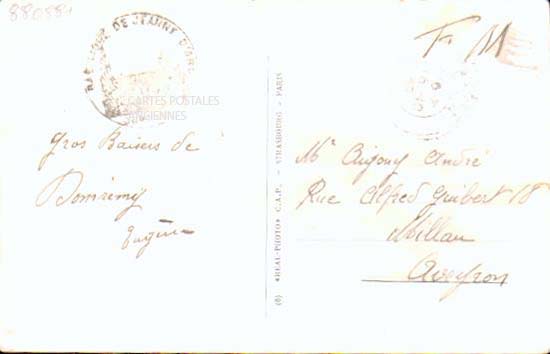 880581
DE JEANNE D'ARC
CARTES POSTALES
ANCIENNES
F. M
Gros Baisers de
Domrémy
Eugène
(6) «REAL-PHOTO» C.A.P. - STRASBOURG - PARIS
Mr Aujouy André
Rue Alfred Guibert 18
Millau
Aveyron